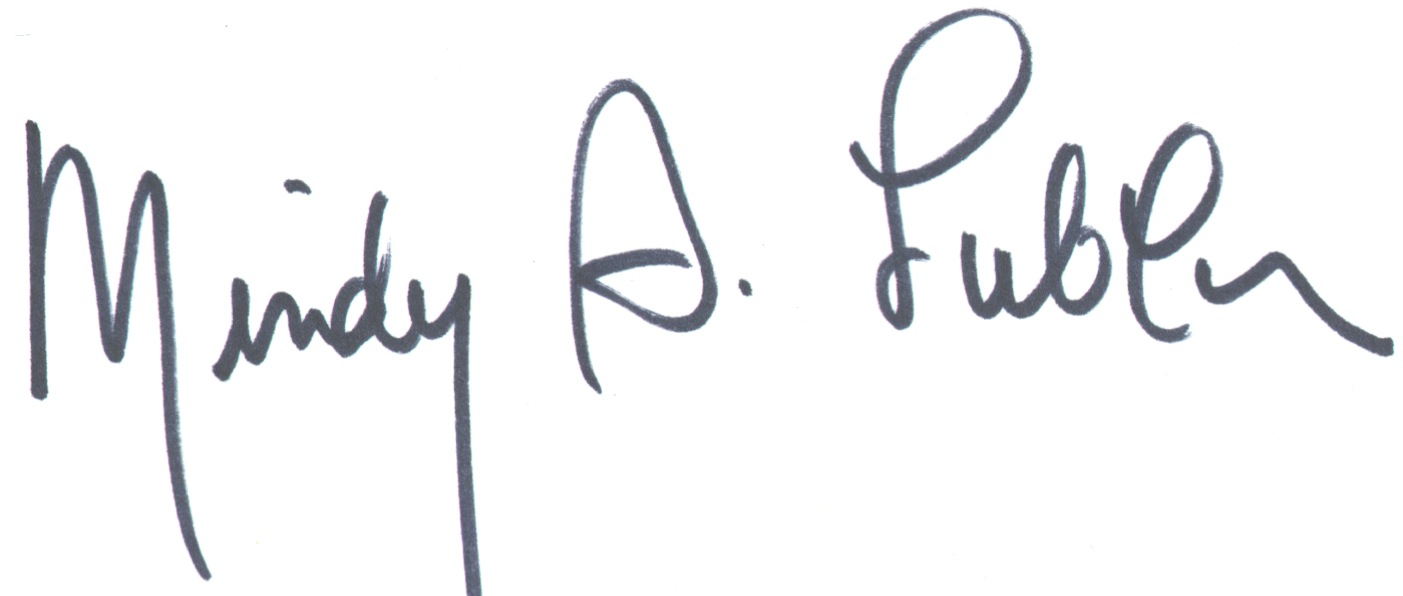 Mindy S. Lubber